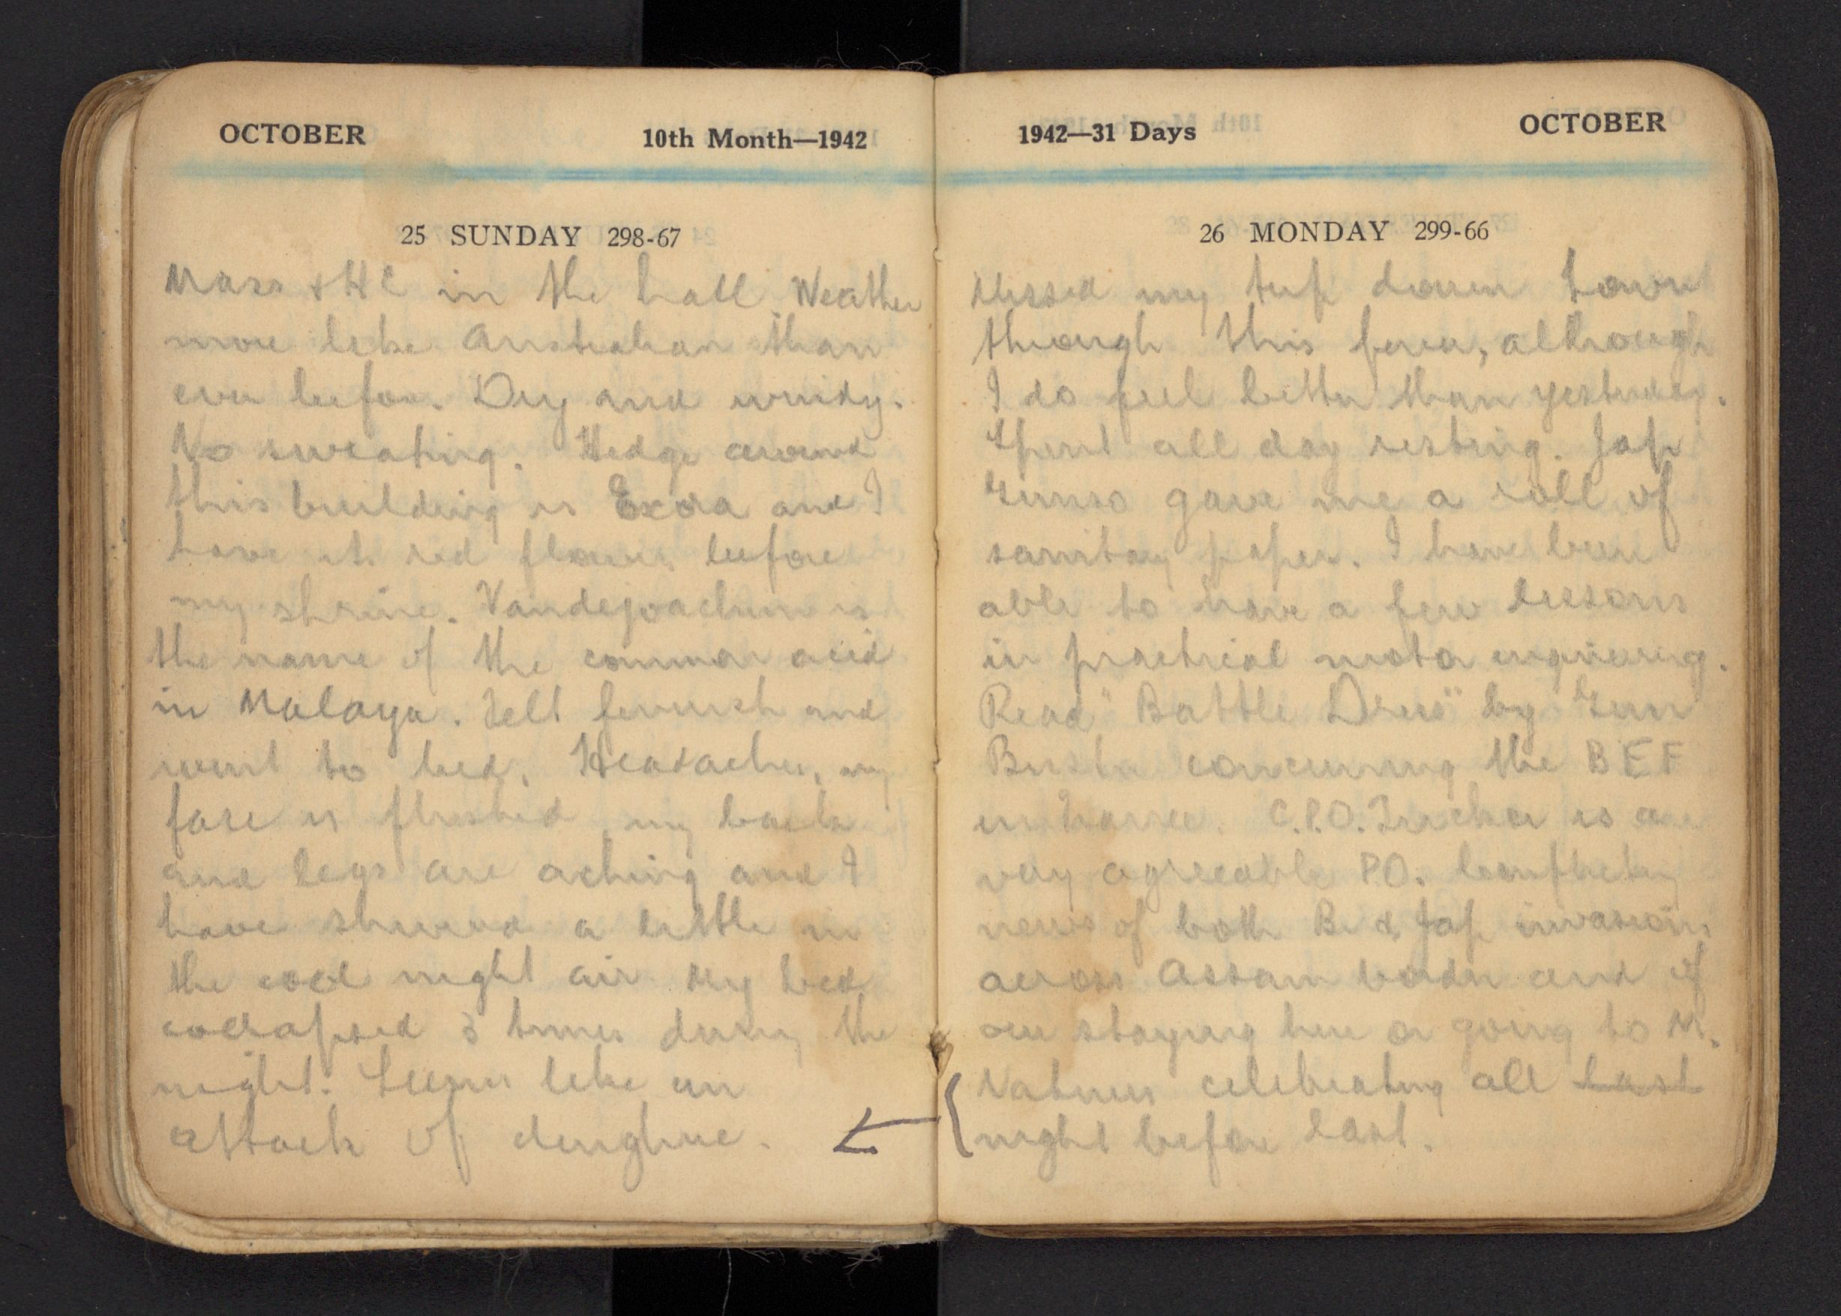 OCTOBER 10th Month—1942
25 SUNDAY 298-67
Mass + HC in the hall Weather
more like Australian than
ever before. Dry and windy.
No sweating. Hedge around
this building is Exora and I
have its red flowers before
my shrine. Vandejoachum is
the name of the common
in Malaya. Felt feverish and
went to bed. Headaches, my
face is flushed my back
and legs are aching and I
have shivered a little in
the cool night air My bed
collapsed 3 times during the
night. Seems like an
attack of denghue.
1942—31 Days OCTOBER
26 MONDAY 299-66
Missed my trip down town
through this fever, although
I do feel better than yesterday.
Spent all day resting. Jap
Gunso gave me a roll of
sanitary paper. I have been
able to have a few lessons
in practical motor engineering.
Read "Battle Dress" by Gun
Buster concerning the BEF
in France. C.P.O. is a
very agreeable P.O. Conflicting
news of both Br & Jap invasions
across Assam border and of
our staying here or going to M.
Natives celebrating all last
night before last.